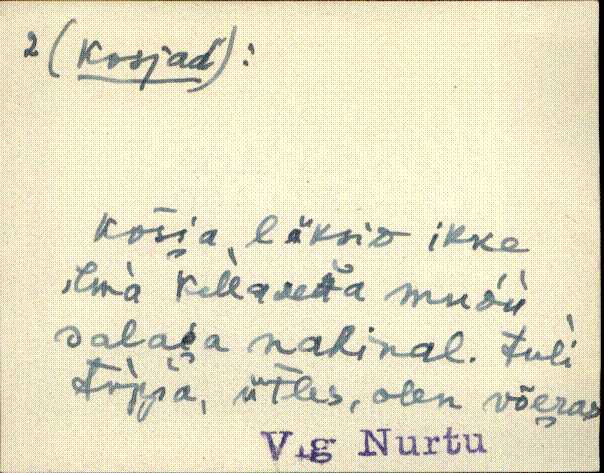 2 (Kosjad):
Kosja läksid ikke
ilma kellaxetta muöü
salaja nahinal. tuli
tuppa, ütles, olen võeras
Vig Nurtu